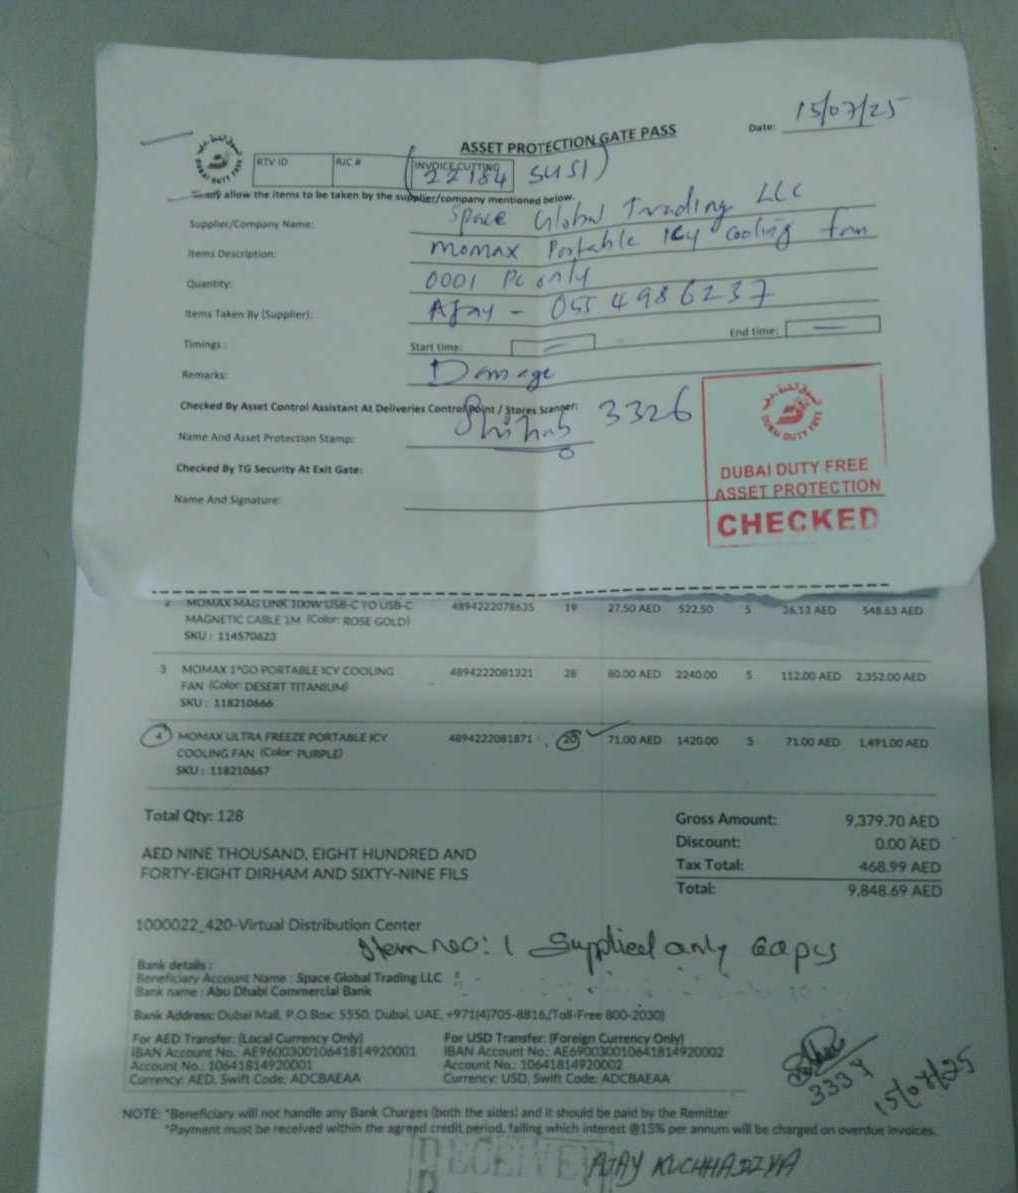 Date: 15/07/25
ASSET PROTECTION GATE PASS
DUBAI DUTY FREE
RTV ID RJC # INVOICE CUTTING
22184 SUSI
allow the items to be taken by the supplier/company mentioned below.
Supplier/Company Name: Space Global Trading LLC
Items Description: momax Portable Icy Cooling fan
Quantity: 0001 Pc only
Items Taken By (Supplier): Ajay - 055 4986237
Timings : Start time: End time:
Remarks: Damage
Checked By Asset Control Assistant At Deliveries Control Point / Stores Scanner:
Name And Asset Protection Stamp: Shihab 3326
Checked By TG Security At Exit Gate:
Name And Signature:
DUBAI DUTY FREE
DUBAI DUTY FREE
ASSET PROTECTION
CHECKED
2 MOMAX MAG LINK 100W USB-C TO USB-C 4894222078635 19 27.50 AED 522.50 5 26.13 AED 548.63 AED
MAGNETIC CABLE 1M (Color: ROSE GOLD)
SKU : 114570623
3 MOMAX 1*GO PORTABLE ICY COOLING 4894222081321 28 80.00 AED 2240.00 5 112.00 AED 2,352.00 AED
FAN (Color: DESERT TITANIUM)
SKU : 118210666
4 MOMAX ULTRA FREEZE PORTABLE ICY 4894222081871 20 71.00 AED 1420.00 5 71.00 AED 1,491.00 AED
COOLING FAN (Color: PURPLE)
SKU : 118210667
Total Qty: 128
Gross Amount: 9,379.70 AED
Discount: 0.00 AED
Tax Total: 468.99 AED
Total: 9,848.69 AED
AED NINE THOUSAND, EIGHT HUNDRED AND
FORTY-EIGHT DIRHAM AND SIXTY-NINE FILS
1000022_420-Virtual Distribution Center
Item no: 1 Supplied only 60pcs
Bank details :
Beneficiary Account Name : Space Global Trading LLC
Bank name : Abu Dhabi Commercial Bank
Bank Address: Dubai Mall, P.O.Box: 5550, Dubai, UAE, +971(4)705-8816,(Toll-Free 800-2030)
For AED Transfer: (Local Currency Only)
IBAN Account No.: AE960030010641814920001
Account No.: 10641814920001
Currency: AED, Swift Code: ADCBAEAA
For USD Transfer: (Foreign Currency Only)
IBAN Account No.: AE690030010641814920002
Account No.: 10641814920002
Currency: USD, Swift Code: ADCBAEAA
3334
15/07/25
NOTE: *Beneficiary will not handle any Bank Charges (both the sides) and it should be paid by the Remitter
*Payment must be received within the agreed credit period, failing which interest @15% per annum will be charged on overdue invoices.
RECEIVED
AJAY KUCHHADIYA